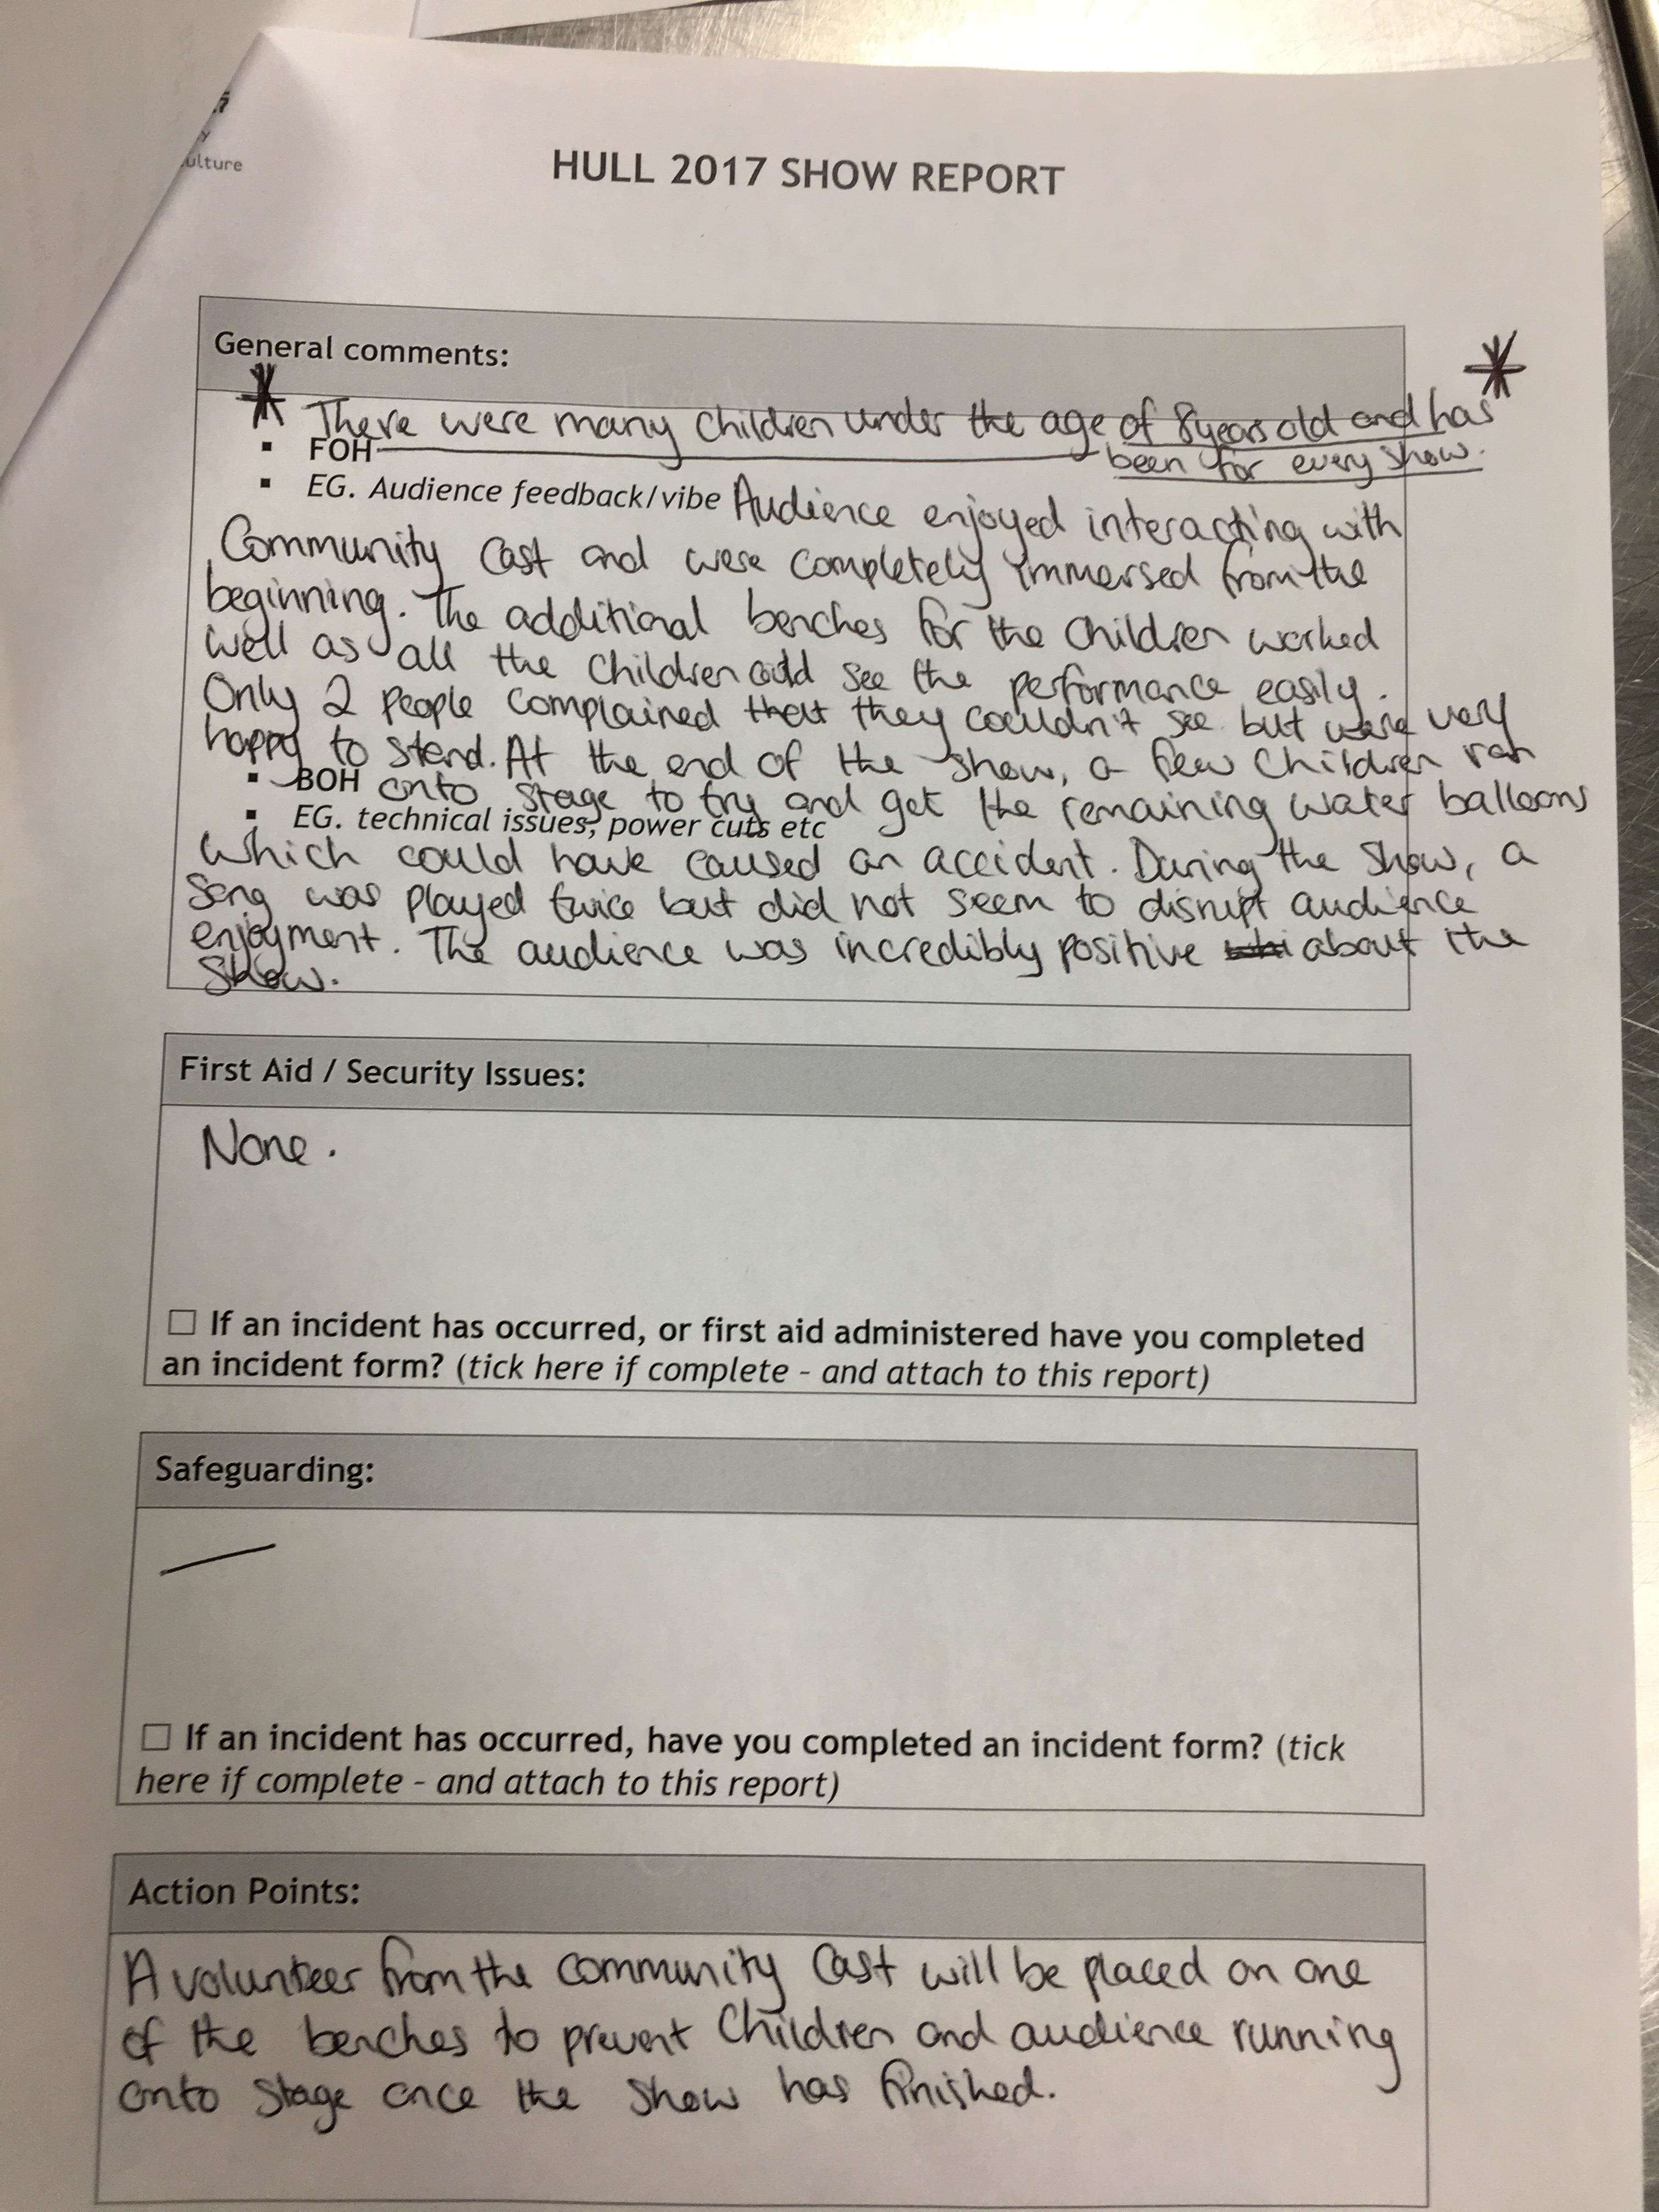 ulture
HULL 2017 SHOW REPORT
General comments:
* There were many children under the age of 8years old and has *
FOH
been for every show.
EG. Audience feedback/vibe Audience enjoyed interacting with
Community Cast and were completely immersed from the
beginning. The additional benches for the children worked
well as all the children could see the performance easily.
Only 2 people complained that they couldn't see but were very
happy to stand. At the end of the show, a few children ran
BOH onto stage to try and get the remaining water balloons
EG. technical issues, power cuts etc
which could have caused an accident. During the show, a
song was played twice but did not seem to disrupt audience
enjoyment. The audience was incredibly positive about the
show.
First Aid / Security Issues:
None.
☐ If an incident has occurred, or first aid administered have you completed
an incident form? (tick here if complete - and attach to this report)
Safeguarding:
—
☐ If an incident has occurred, have you completed an incident form? (tick
here if complete - and attach to this report)
Action Points:
A volunteer from the community Cast will be placed on one
of the benches to prevent children and audience running
onto stage once the show has finished.